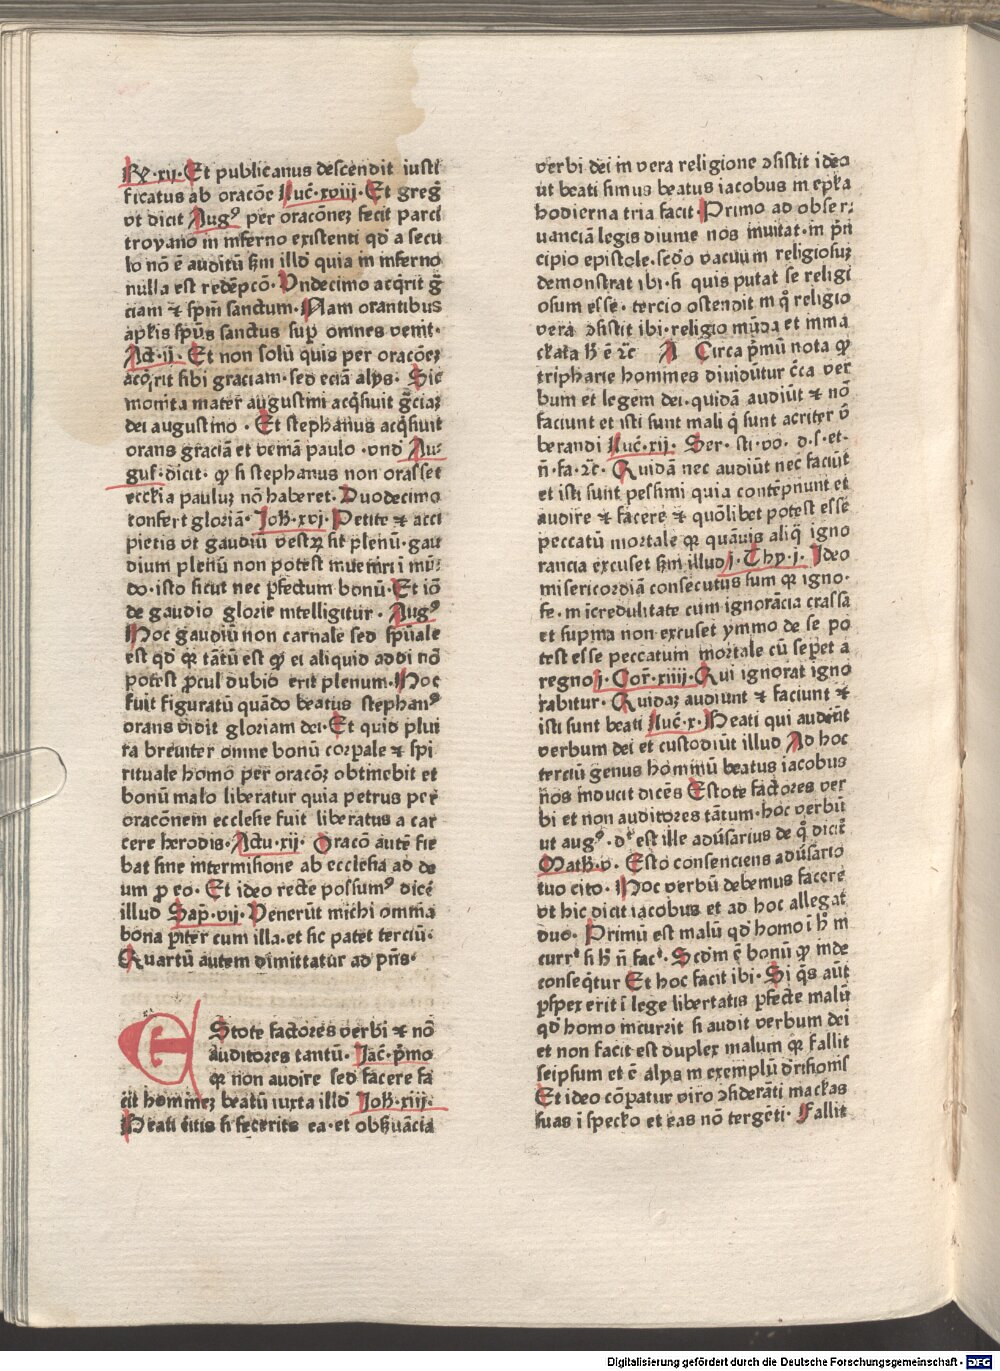 Rͦ·xij· Et publicanus descendit iusti
ficatus ab oracōe Luc̄·xviij· Et greg̉
vt dicit Augꝰ per oracōneꝫ fecit parci
troyano in inferno existenti qd̓ a secu
lo nō ē auditū ẜm illd̓ quia in inferno
nulla est redēpcō· Vndecimo acq̄rit g̓
ciam ⁊ sp̄m sanctum· Nam orantibus
apl̓is sp̄us sanctus suꝑ omnes venit·
Act̄·ij· Et non solū quis per oracōeꝫ
acq̓rit sibi graciam·sed eciā alijs· Sic
monita mater augustini acq̄siuit g̓ciaꝫ
dei augustino · Et stephanus acq̄siuit
orans graciā et veniā paulo ·vnd̓ Au
gus̄·dicit· ꝙ si stephanus non orasset
eccl̓ia pauluꝫ nō haberet· Duodecimo
confert gloriā· Joh̄·xvj· Petite ⁊ acci
pietis vt gaudiū vestꝝ sit plenū·gau
dium plenū non potest inueniri ī mū
do·isto sicut nec ꝑfectum bonū· Et iō
de gaudio glorie intelligitur · Augꝰ
Hoc gaudiū non carnale sed sp̄uale
est qd̓ qꝛ tātū est ꝙ ei aliquid addi nō
potest ꝓcul dubio erit plenum· Hoc
fuit figuratū quādo beatus stephanꝰ
orans vidit gloriam dei· Et quid plui
ra breuiter omne bonū corꝑale ⁊ spi
rituale homo per oracōꝫ obtinebit et
bonū malo liberatur quia petrus per
oracōnem ecclesie fuit liberatus a car
cere herodis· Actu·xij· Oracō autē fie
bat sine intermisione ab ecclesia ad de
um ꝓ eo· Et ideo recte possumꝰ dicē
illud Sap̄·vij· Venerūt michi omnia
bona ꝑiter cum illa·et sic patet terciū·
Quartū autem dimittatur ad pn̄s·
EStote factores verbi ⁊ nō
auditores tantū· Jac̄·p̄mo
qꝛ non audire sed facere fa
cit homineꝫ beatū iuxta illd̓ Joh̄·xiij·
Beati eitis si feceritis ea·et obẜuācia
verbi dei in vera religione ↄsistit ideo
vt beati simus beatus iacobus in epl̓a
hodierna tria facit· Primo ad obser
uanciā legis diuine nos inuitat·in p̄n
cipio epistole·sed̓o vacuum religiosuꝫ
demonstrat ibi·si quis putat se religi
osum esse· tercio ostendit in q̄ religio
vera ↄsistit ibi·religio mūda et inma
ckata h̄ ē ⁊c̄ A Circa p̄mū nota ꝙ
tripharie hommes diuidūtur c̄ca ver
bum et legem dei·quidā audiūt ⁊ nō
faciunt et isti sunt mali q̄ sunt acriter v̄
berandi Luc̄·xij· Ser· sci·vo· d·s·et·
n̄·fa·⁊c̄· Quidā nec audiūt nec faciūt
et isti sunt pessimi quia contēpnunt et
audire ⁊ facere ⁊ quōlibet potest esse
peccatū mortale qꝛ quāuis aliq̄ igno
rancia excuset ẜm illud j· Thy·j· Ideo
misericordiā consecutus sum qꝛ igno·
fe· in īcredulitate cum ignorācia crassa
et supina non excuset ymmo de se po
test esse peccatum mortale cū seꝑet a
regno j· Cor̄·xiiij· Qui ignorat igno
rabitur· Quidaꝫ audiunt ⁊ faciunt ⁊
isti sunt beati Luc̄·x· Beati qui audiūt
verbum dei et custodiūt illud Ad hoc
terciū genus hominū beatus iacobus
nos inducit dicēs Estote factores ver
bi et non auditores tātum·hoc verbū
ut augꝰ· d̓t est ille adūsarius de q̄ dicit̄
Math·v· Esto consenciens adūsario
tuo cito· Hoc verbū debemus facere
vt hic dicit iacobus et ad hoc allegat
duo· Primū est malū qd̓ homo ī h̄ in
curr̓t si h̄ n̄ fac̓t· Scd̓m ē bonū ꝙ inde
conseq̄tur Et hoc facit ibi· Si q̄s aūt
ꝑspex̓erit ī lege libertatis ꝑfecte malū
qd̓ homo incurrit si audit verbum dei
et non facit est duplex malum qꝛ fallit
seipsum et ē alijs in exemplū d̓risionis
Et ideo cōꝑatur viro ↄsiderāti mackas
suas ī specko et eas nō tergēti· Fallit
Digitalisierung gefördert durch die Deutsche Forschungsgemeinschaft - DFG